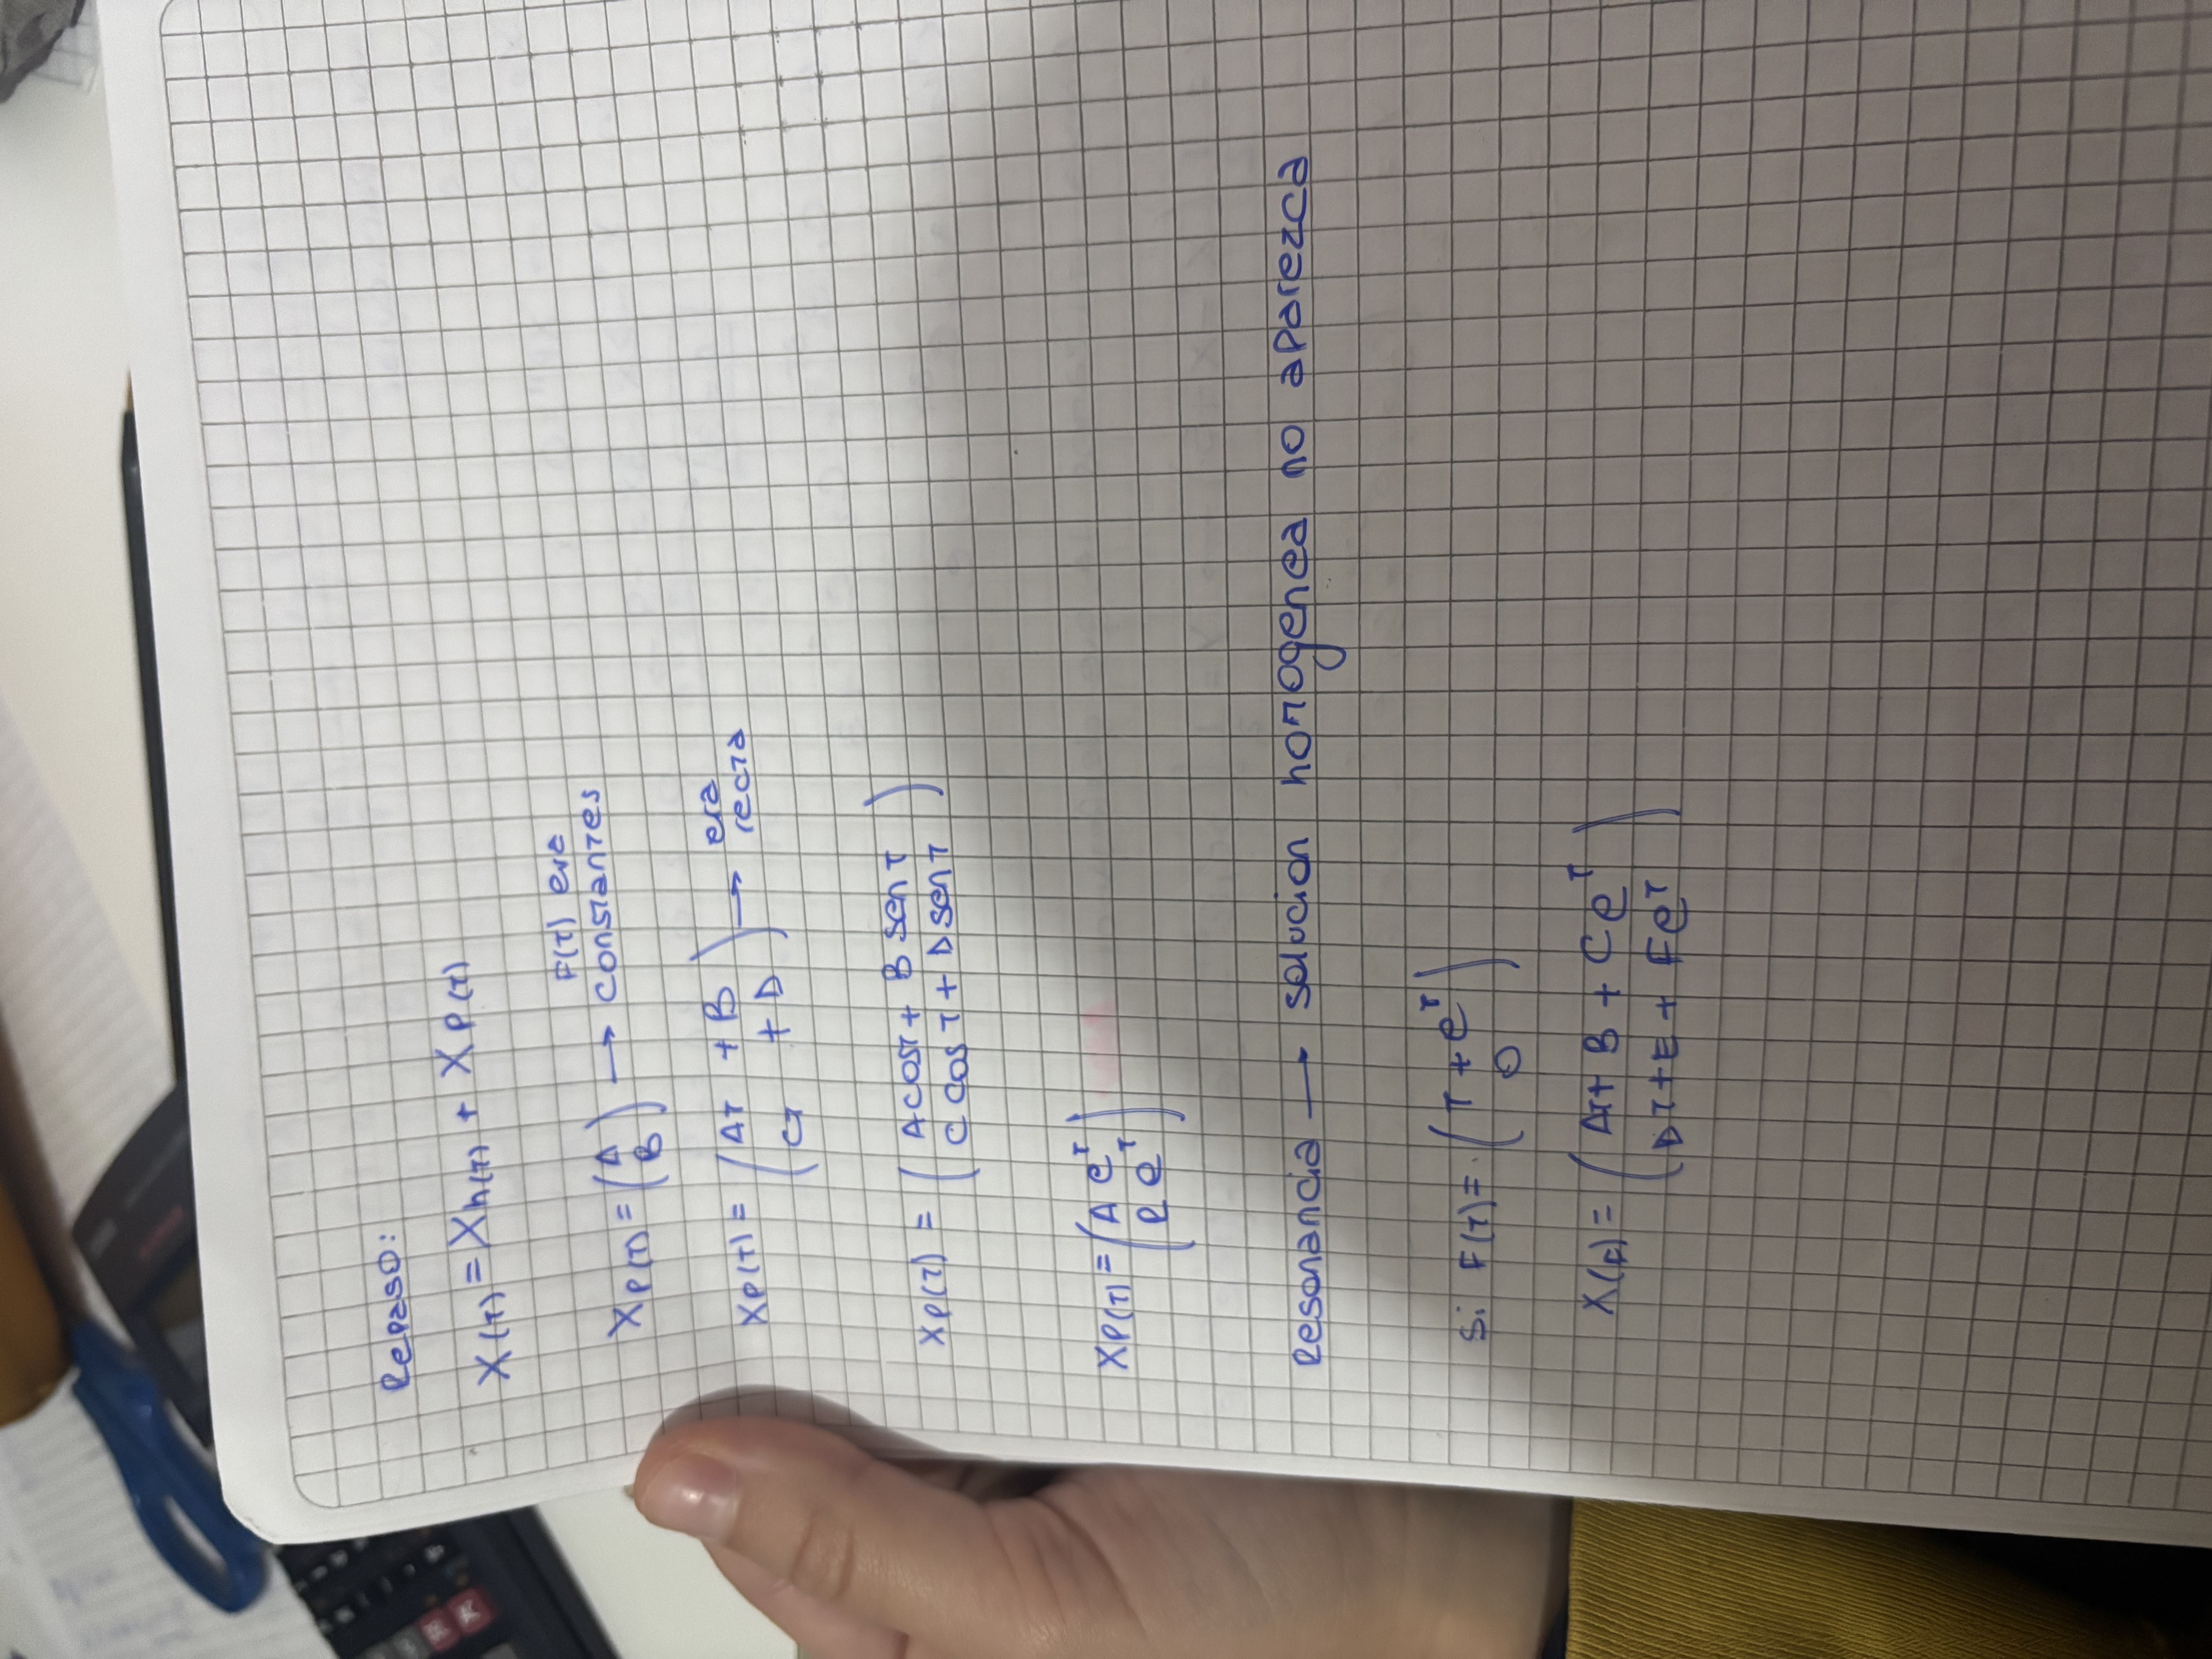 Repaso:
X(T) = Xh(T) + XP(T)
F(T) era
XP(T) = (A → constantes
B)
XP(T) = (AT + B → era
CT + D) recta
XP(T) = (A cosT + B senT
C cosT + D senT)
XP(T) = (A e^T
B e^T)
Resonancia → solucion homogenea no aparezca
Si F(T) = (T + e^T
0)
X(t) = (AT + B + C e^T
DT + E + F e^T)